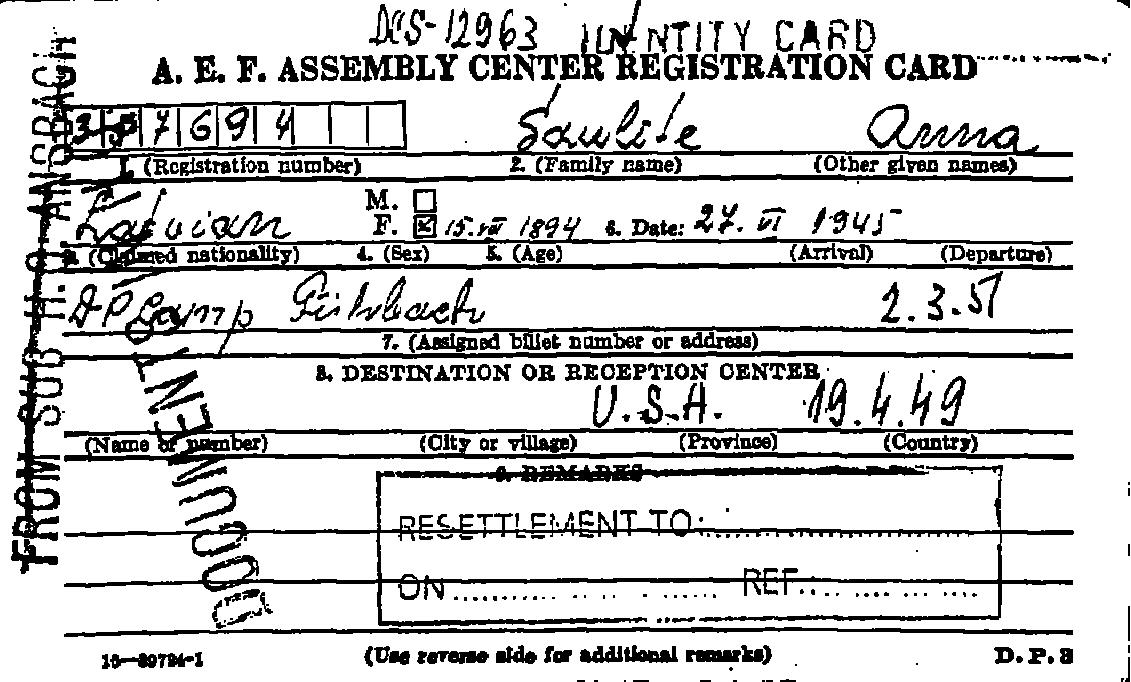 DCS-12963 IDENTITY CARD
A. E. F. ASSEMBLY CENTER REGISTRATION CARD
7694 Saulite Anna
1. (Registration number) 2. (Family name) (Other given names)
M.
Latvian F. 15.VII 1894 6. Date: 27. VI 1945
3. (Claimed nationality) 4. (Sex) 5. (Age) (Arrival) (Departure)
DP Camp 2.3.51
7. (Assigned billet number or address)
8. DESTINATION OR RECEPTION CENTER
U.S.A. 19.4.49
(Name or number) (City or village) (Province) (Country)
9. REMARKS
RESETTLEMENT TO:
ON REF
16—39724-1 (Use reverse side for additional remarks) D.P. 3
FROM SUB H.Q ANSBACH
DOCUMENT